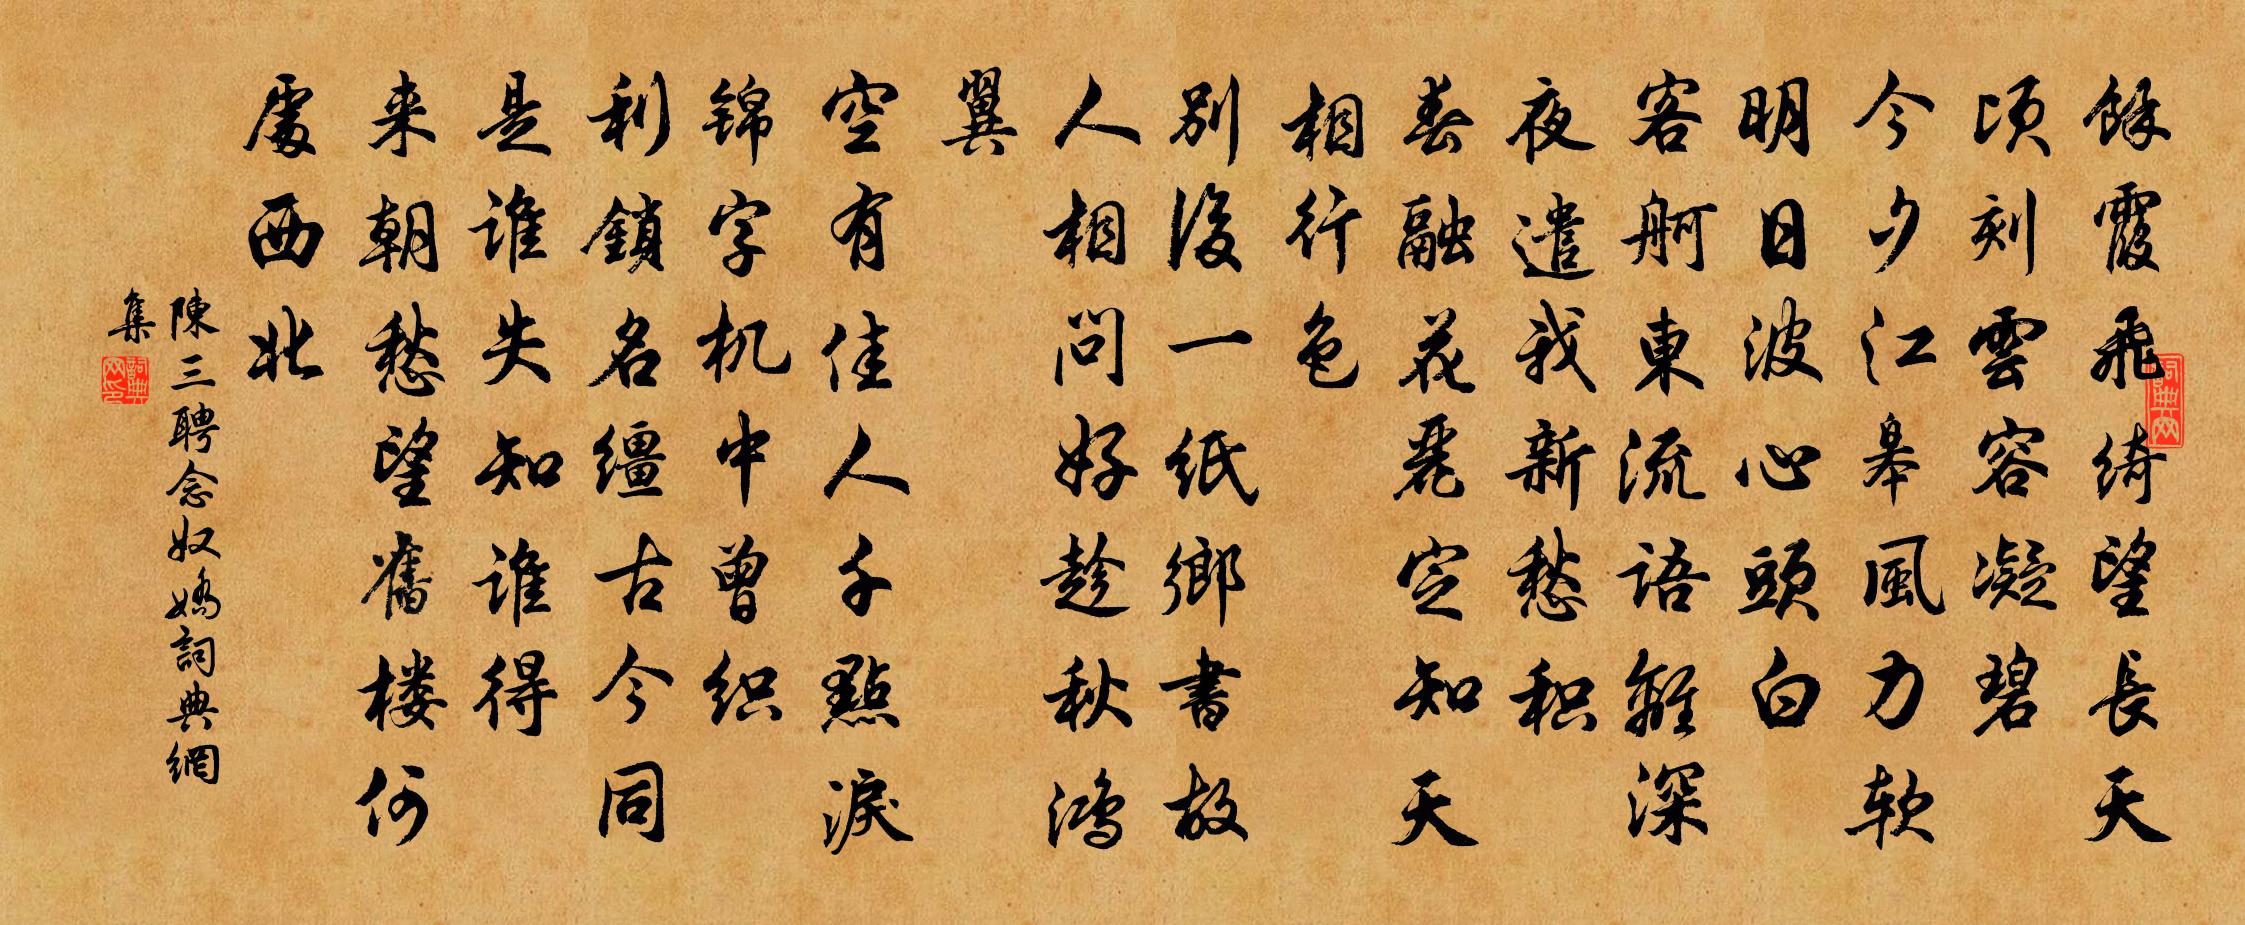 餘霞飛綺望長天
頃刻雲容凝碧
今夕江皋風力软
明日波心頭白
客舸東流語離深
夜遣我新愁积
春融花麗定知天
相行色
别後一纸鄉書故
人相問好趁秋鴻
翼
空有佳人千點淚
锦字机中曾织
利鎖名缰古今同
是谁失知谁得
来朝愁望舊楼何
處西北
陳三聘念奴嬌詞典網
集
詞典网
詞典网印